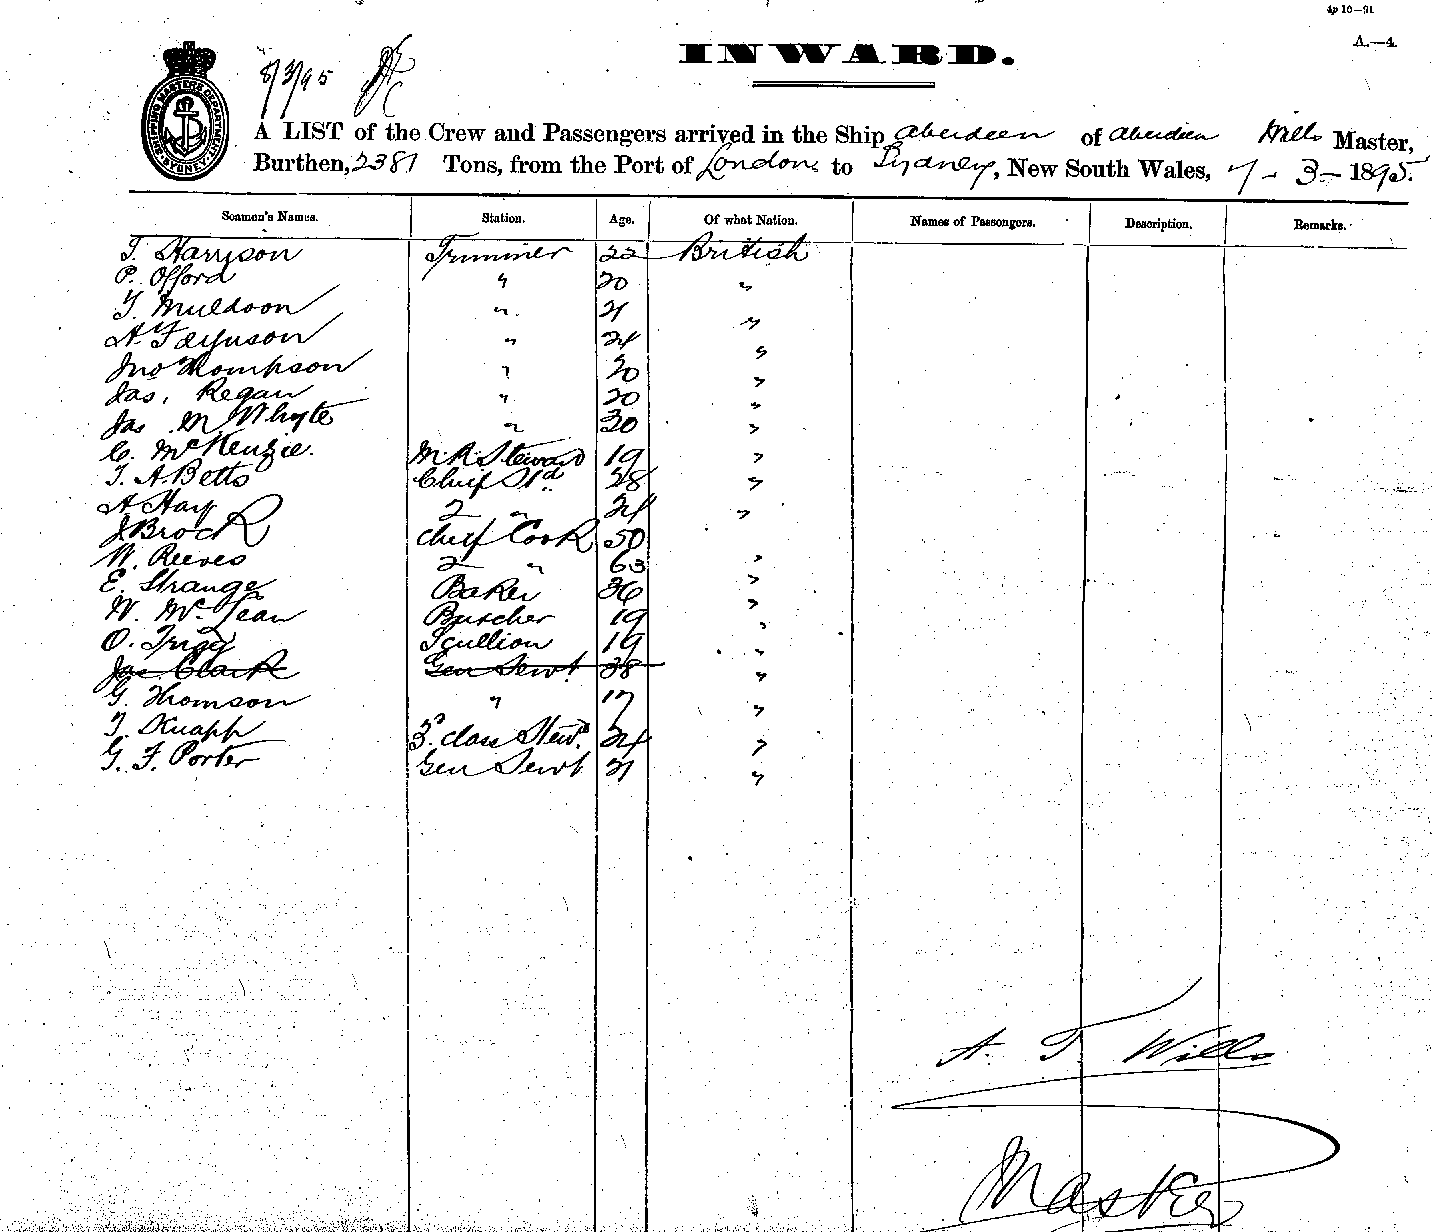 4p 10—91
A.—4.
INWARD.
8/3/95
A LIST of the Crew and Passengers arrived in the Ship Aberdeen of Aberdeen Wills Master,
Burthen, 2381 Tons, from the Port of London to Sydney, New South Wales, 7 - 3 - 1895.
Seamen's Names. Station. Age. Of what Nation. Names of Passengers. Description. Remarks.
T. Harrison Trimmer 22 British
P. Offord " 20 "
T. Muldoon " 21 "
A. Ferguson " 24 "
Jno Thompson " 20 "
Jas. Regan " 20 "
Jas. M Whyte " 30 "
C. McKenzie. M R Steward 19 "
T. A. Betts Chief Std 28 "
A Hay 2 " 24 "
J Brock Chief Cook 50
W. Reeves 2 " 63 "
E. Strange Baker 36 "
W. Mc Lean Butcher 19 "
O. Trigg Scullion 19 "
Jas Clark Gen Servt 38 "
G. Thomson " 17 "
T. Knapp 3rd class Stewd 24 "
G. F. Porter Gen Servt 21 "
A. T Wills
Master